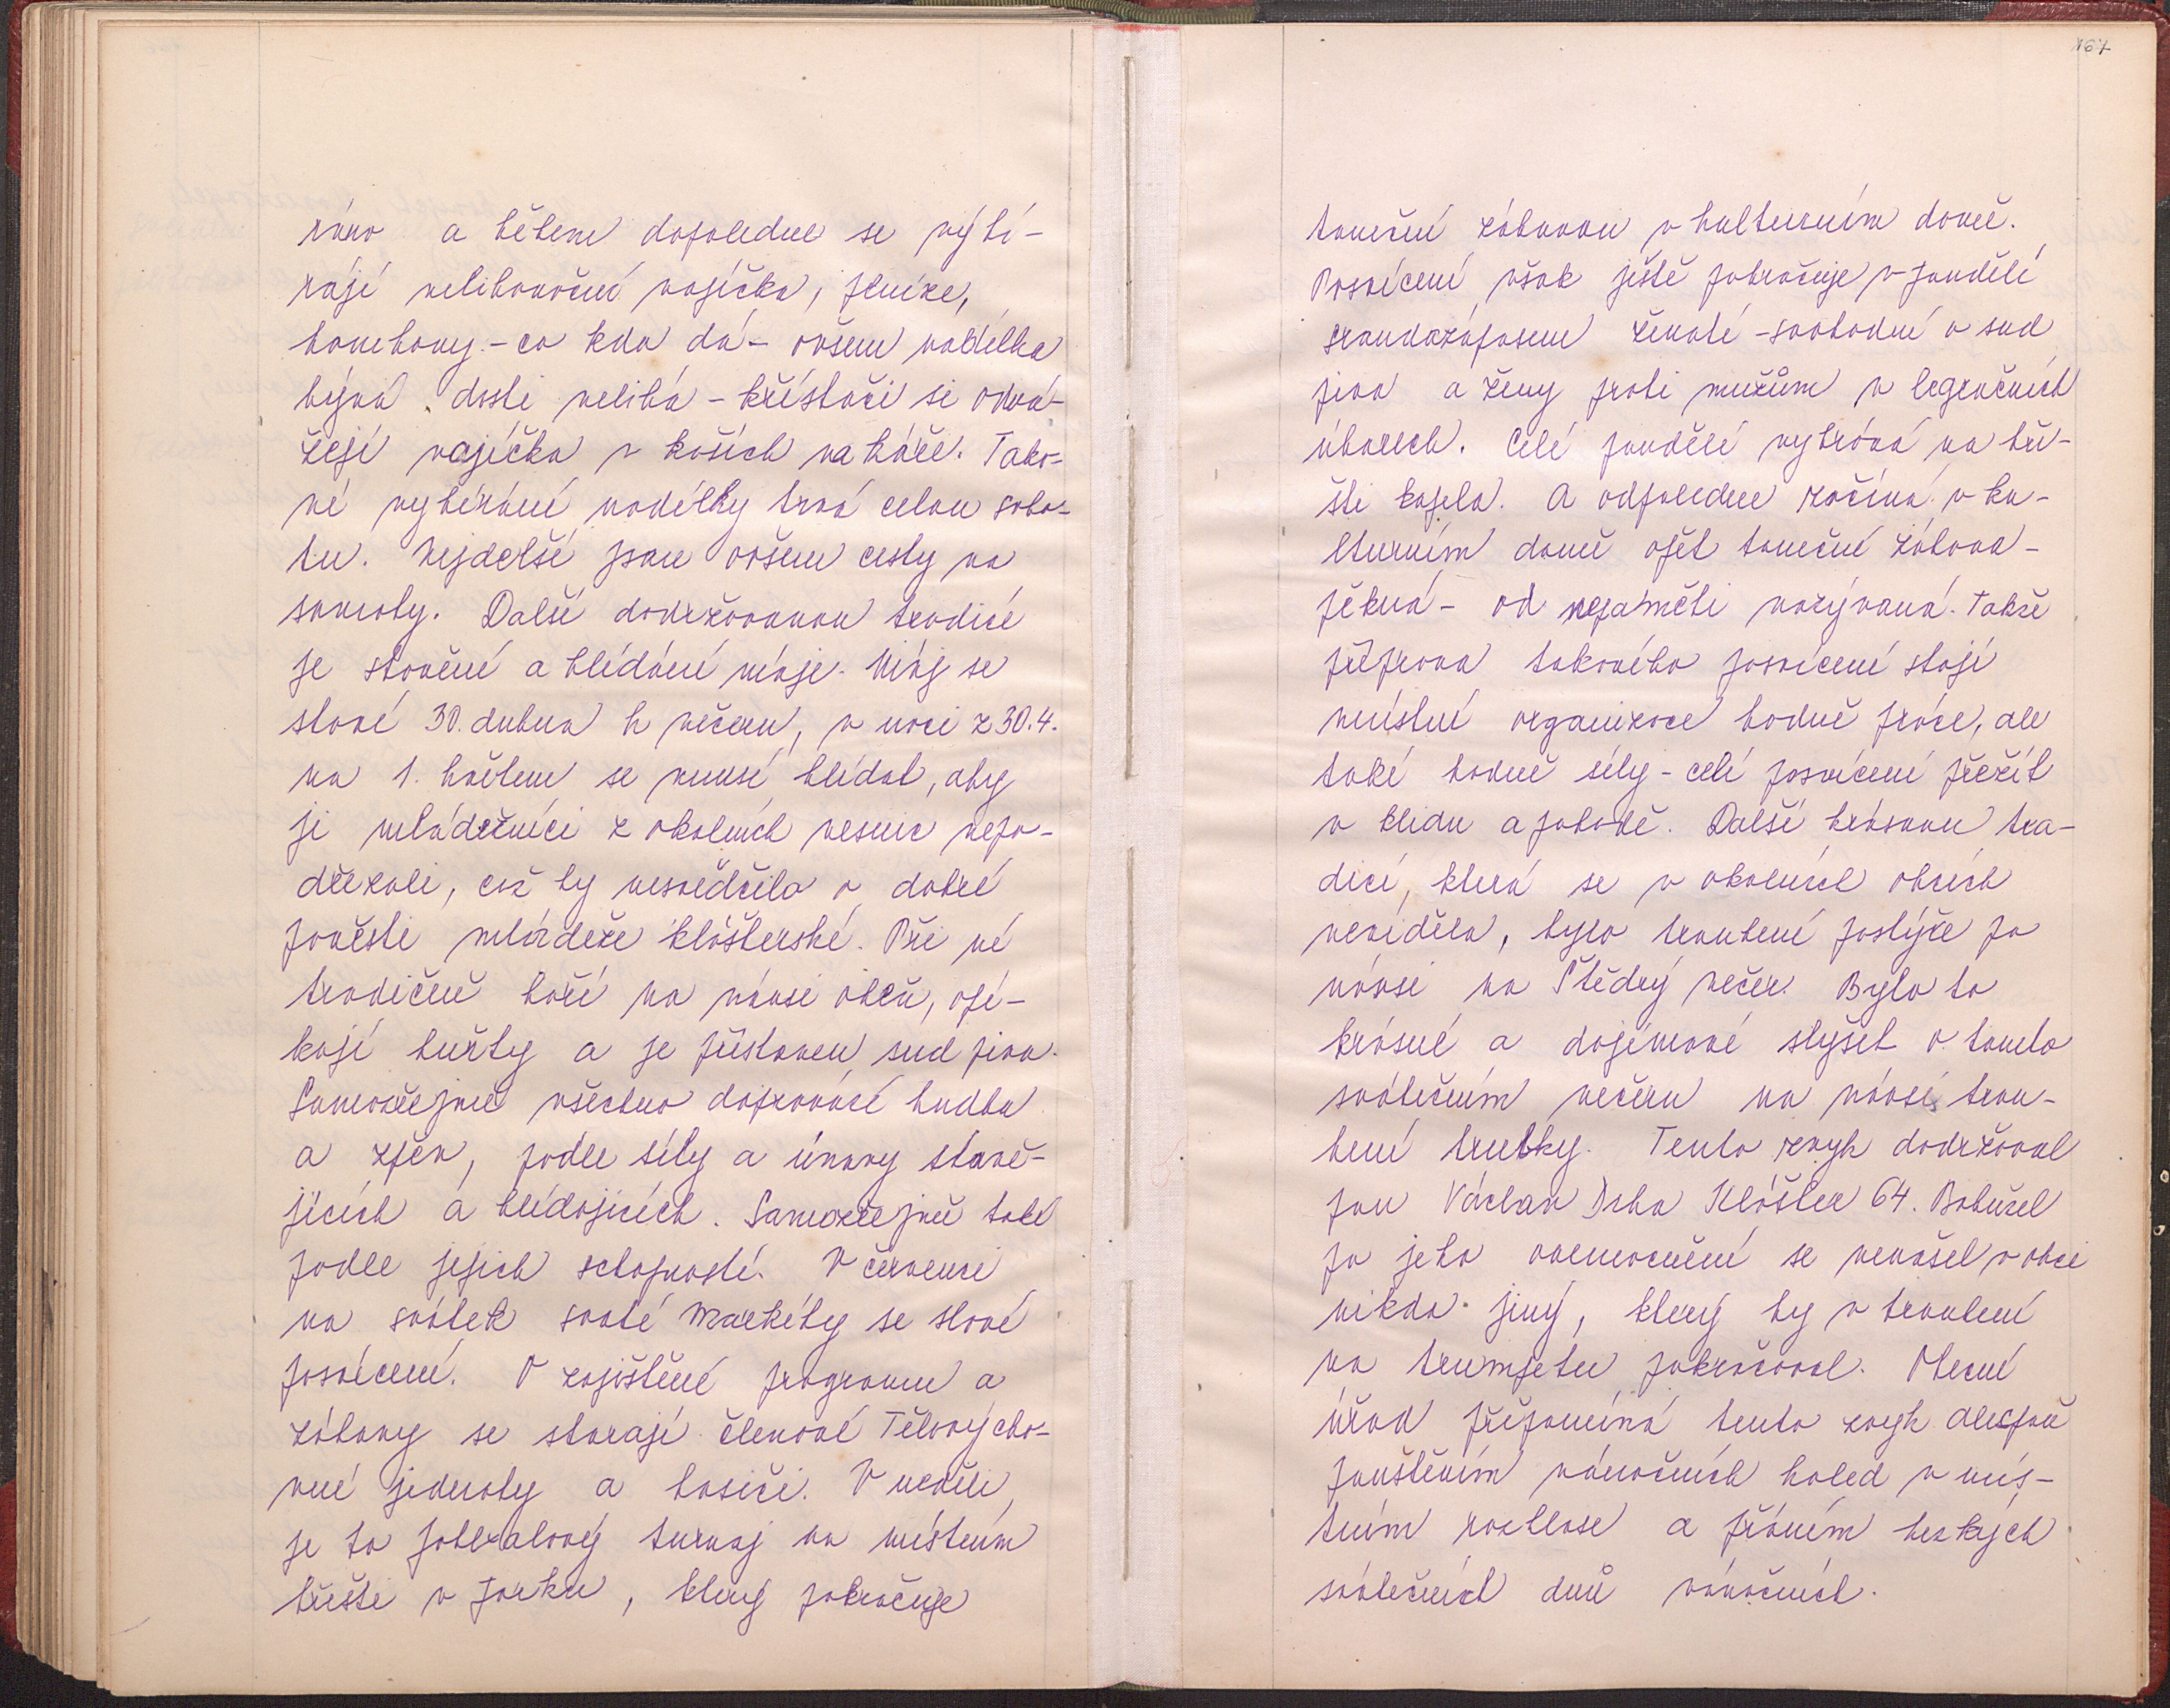 ráno a během dopoledne se vybí-
rájí velikonoční vajíčka, peníze,
bonbony - co kdo dá - ovšem nadílka
bývá dosti veliká - křístači si odvá-
žejí vajíčka v koších na káře. Tako-
vé vybírání nadílky trvá celou sobo-
tu. Nejdelší jsou ovšem cesty na
samoty. Další dodržovanou tradicí
je stavění a hlídání máje. Máj se
staví 30. dubna k večeru, v noci z 30.4.
na 1. květen se musí hlídat, aby
ji mládežníci z okolních vesnic nepo-
dřezali, což by nesvědčilo o dobré
pověsti mládeže klášterské. Při ní
tradičně hoří na návsi oheň, opé-
kají buřty a je přistaven sud piva.
Samozřejmě všechno doprovází hudba
a zpěv, podle síly a únavy stavě-
jících a hlídajících. Samozřejmě také
podle jejich schopností. V červenci
na svátek svaté Markéty se slaví
posvícení. O zajištění programu a
zábavy se starají členové Tělovýcho-
vné jednoty a hasiči. V neděli
je to fotbalový turnaj na místním
hřišti v parku, který pokračuje
167
taneční zábavou v kulturním domě.
Posvícení však ještě pokračuje v pondělí
srandazápasem ženatí - svobodní o sud
piva a ženy proti mužům v legračních
úborech. Celé pondělí vyhrává na hři-
šti kapela. A odpoledne začíná v ku-
lturním domě opět taneční zábava -
pěkná - od nepaměti nazývaná. Takže
příprava takového posvícení stojí
místní organizace hodně práce, ale
také hodně síly - celé posvícení přežít
v klidu a pohodě. Další krásnou tra-
dicí, která se v okolních obcích
neviděla, bylo troubení pastýře po
návsi na Štědrý večer. Bylo to
krásné a dojímavé slyšet o tomto
svátečním večeru na návsi trou-
bení trubky. Tento zvyk dodržoval
pan Václav Drha Klášter 64. Bohužel
po jeho onemocnění se nenašel v obci
nikdo jiný, který by v troubení
na trumpetu pokračoval. Obecní
úřad připomíná tento zvyk alespoň
pouštěním vánočních koled v mís-
tním rozhlase a přáním hezkých
svátečních dnů vánočních.